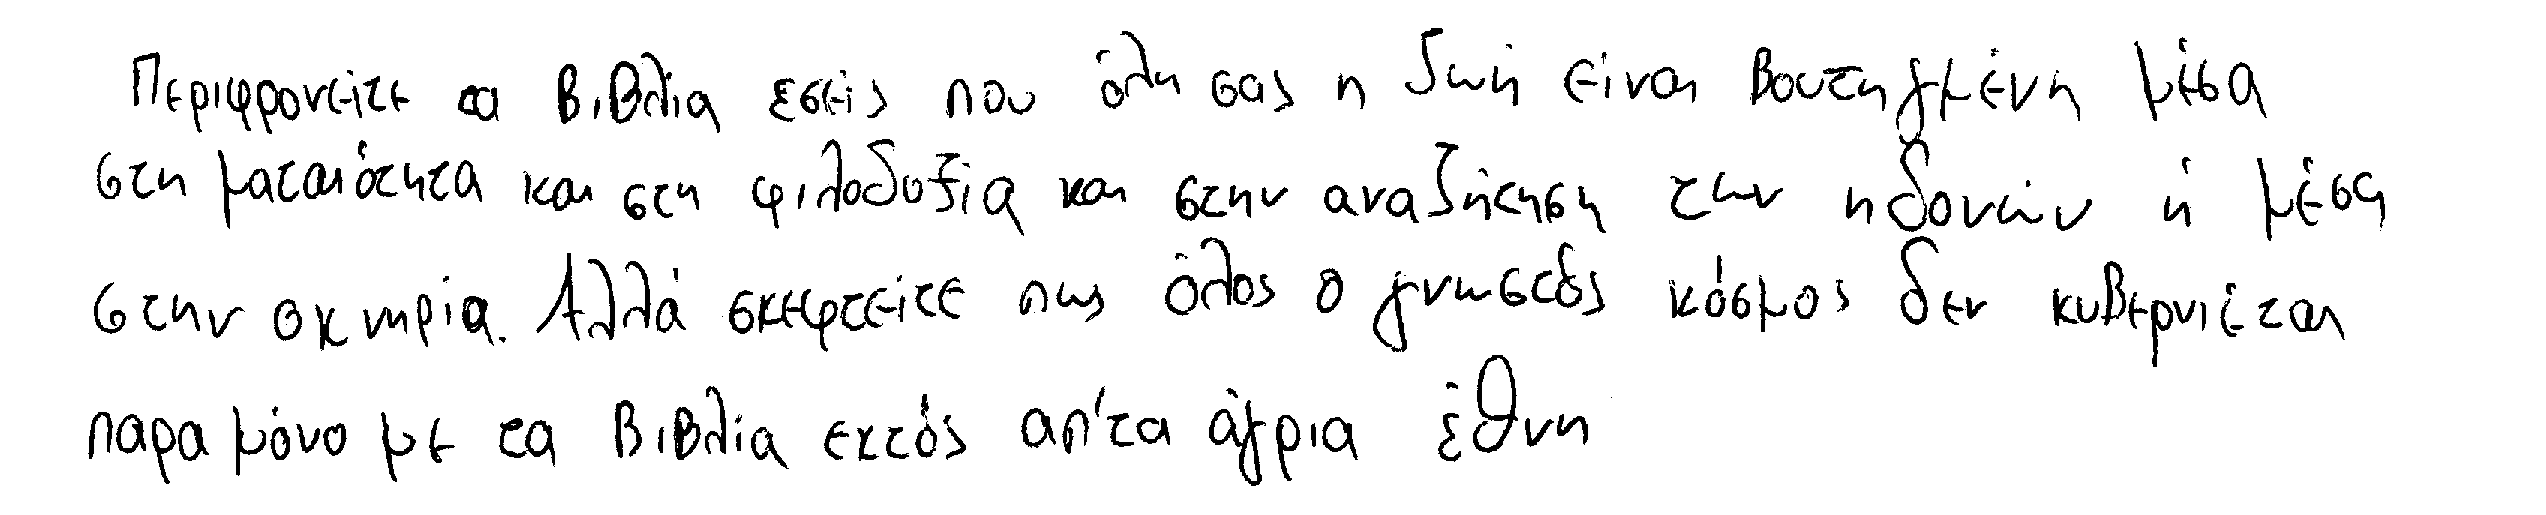 Περιφρονείτε τα βιβλία εσείς που όλη σας η ζωή είναι βουτηγμένη μέσα
στη ματαιότητα και στη φιλοδοξία και στην αναζήτηση των ηδονών ή μέσα
στην οκνηρία. Αλλά σκεφτείτε πως όλος ο γνωστός κόσμος δεν κυβερνιέται
παρα μόνο με τα βιβλία εκτός απ'τα άγρια έθνη